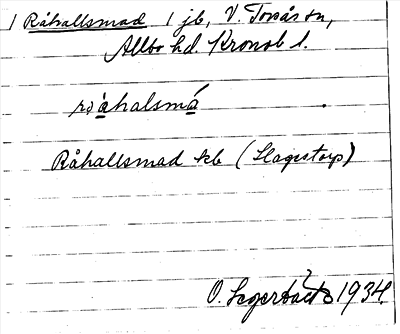 1 Råhallsmad 1 jb, V. Torsås sn,
Allbo hd. Kronob l.
råhalsmá
Råhallsmad tkb (Slagestorp)
O. 1934.